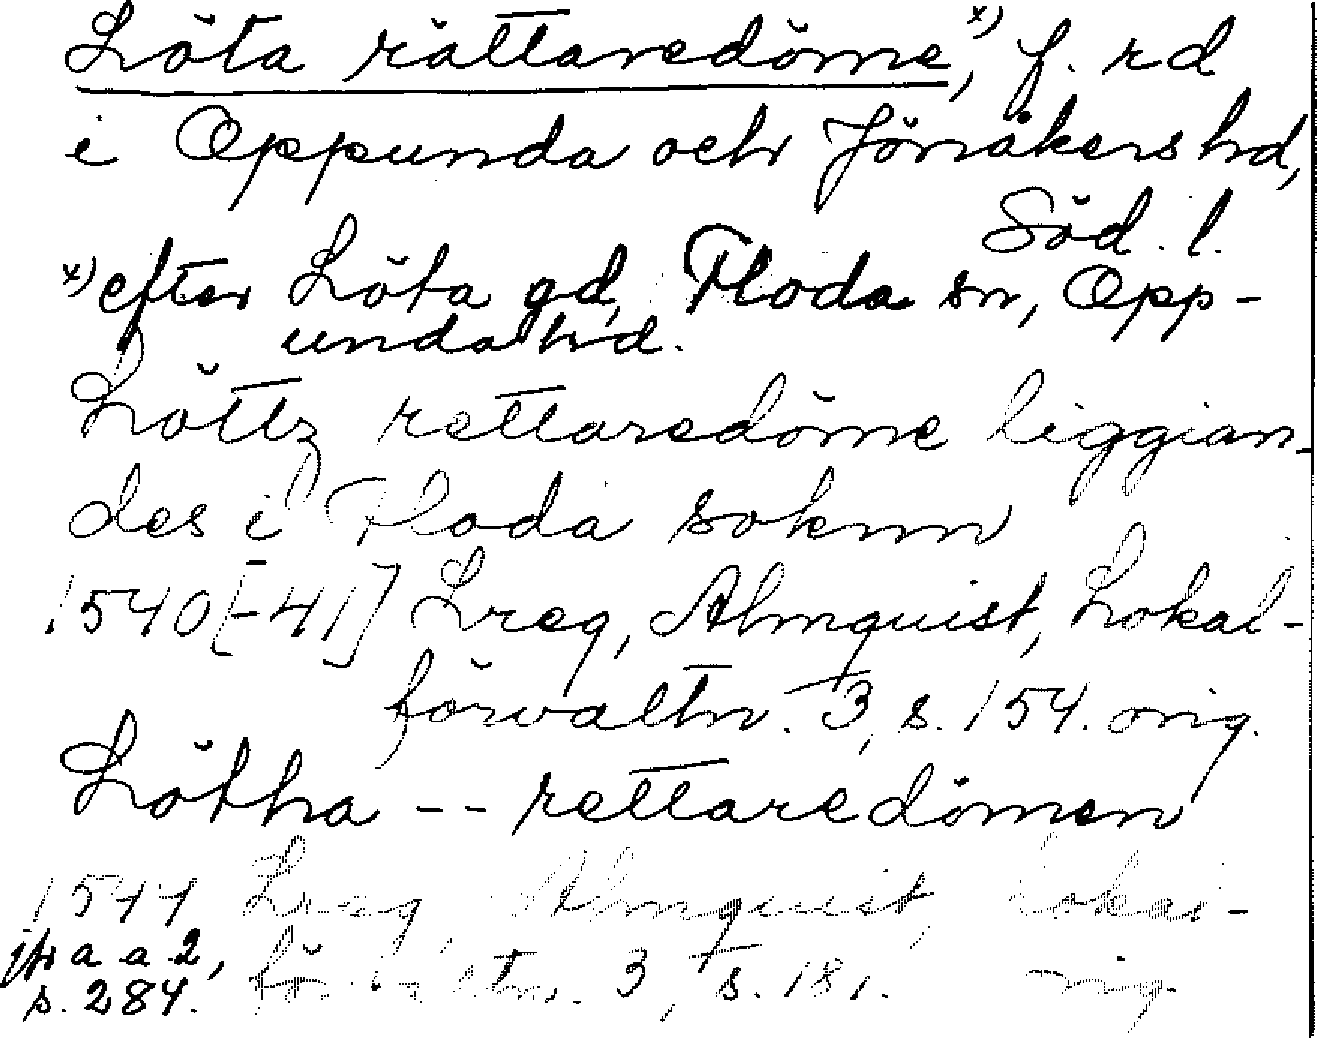 Löta rättaredöme,*) f. rd
i Oppunda och Jönåkers hd,
Söd. l.
*) efter Löta gd, Floda sn, Opp-
unda hd.
Löttz rettaredöme liggian-
des i Floda soknn
1540[-41] Lreg, Almquist, Lokal-
förvaltn. 3, s. 154. orig.
Lötha -- rettaredömen
1544 Lreg, Almquist, Lokal-
jfr a a 2, förvaltn. 3, s. 181. orig.
s. 284.